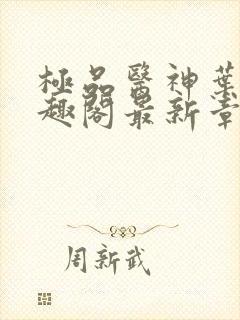 極品醫神葉
趣閣最新章
周新武